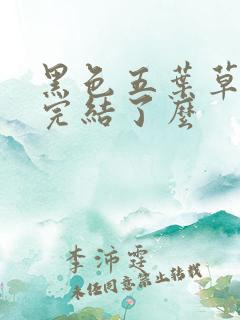 黑色五葉草
完結了麼
李沛霆
未經同意禁止轉載